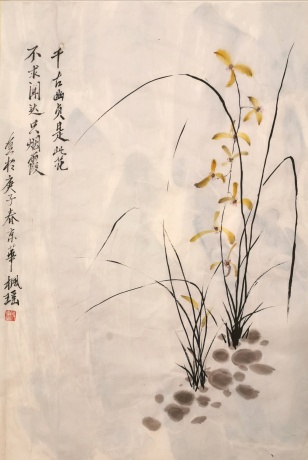 千古幽贞是此花
不求闻达只烟霞
庚子春京华枫瑶